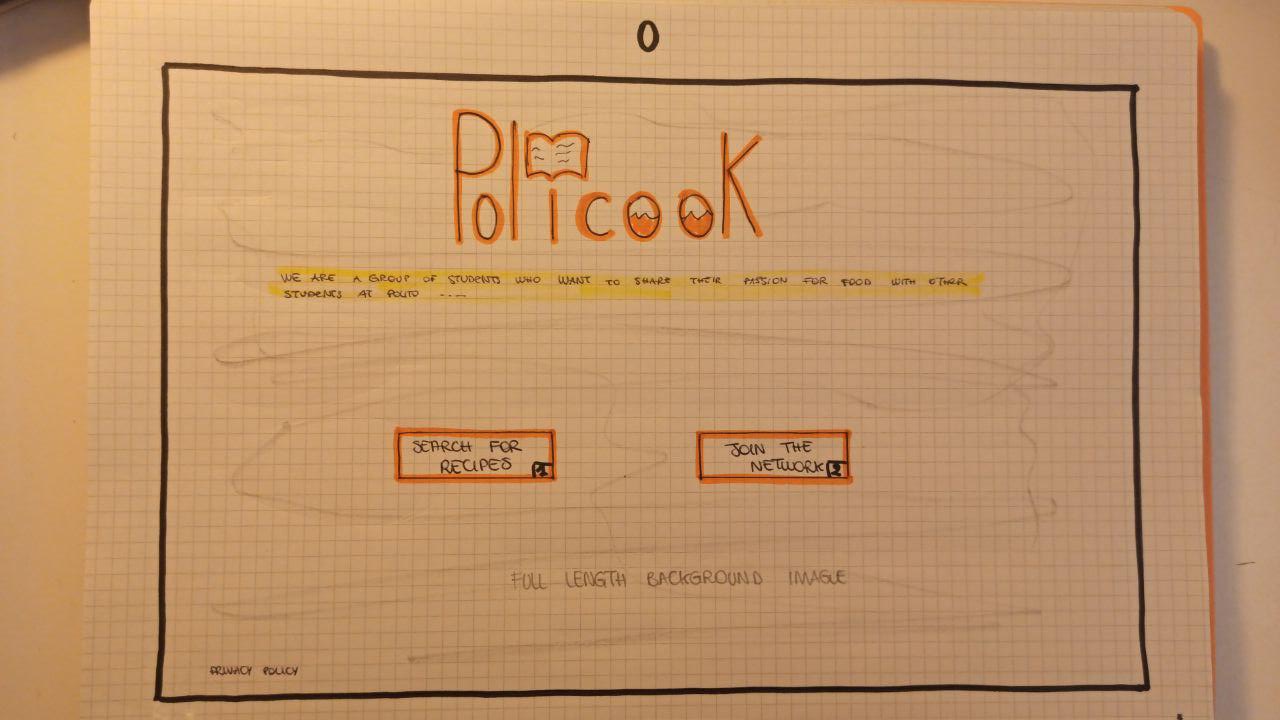 0
PoliCooK
WE ARE A GROUP OF STUDENTS WHO WANT TO SHARE THEIR PASSION FOR FOOD WITH OTHER
STUDENTS AT POLITO ....
SEARCH FOR
RECIPES
1
JOIN THE
NETWORK
2
FULL LENGTH BACKGROUND IMAGE
PRIVACY POLICY